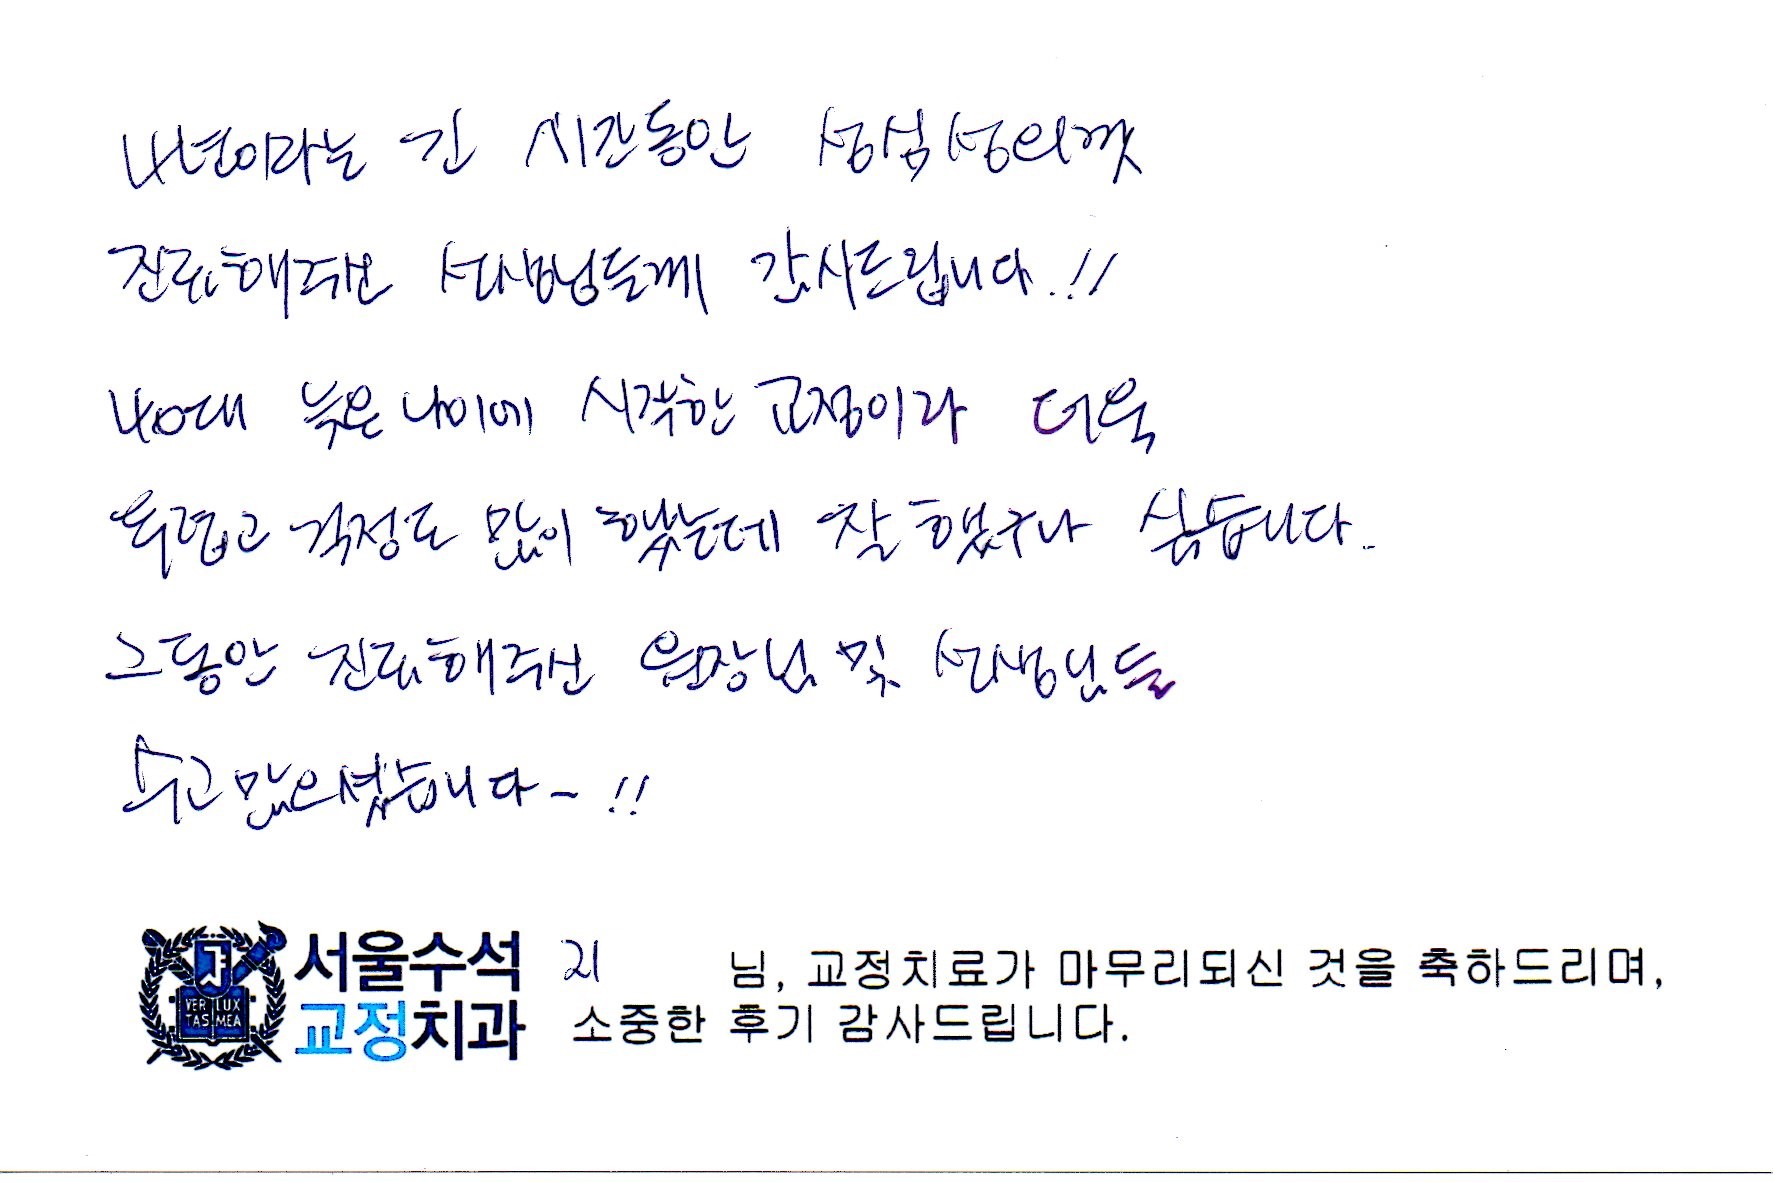 4년이라는 긴 시간동안 성심성의껏
진료해주신 선생님들께 감사드립니다.!!
40대 늦은 나이에 시작한 교정이라 더욱
두렵고 걱정도 많이 했는데 잘 했구나 싶습니다..
그동안 진료해주신 원장님 및 선생님들
수고 많으셨습니다~!!
서울수석
교정치과
VERI LUX
TAS MEA
님, 교정치료가 마무리되신 것을 축하드리며,
소중한 후기 감사드립니다.